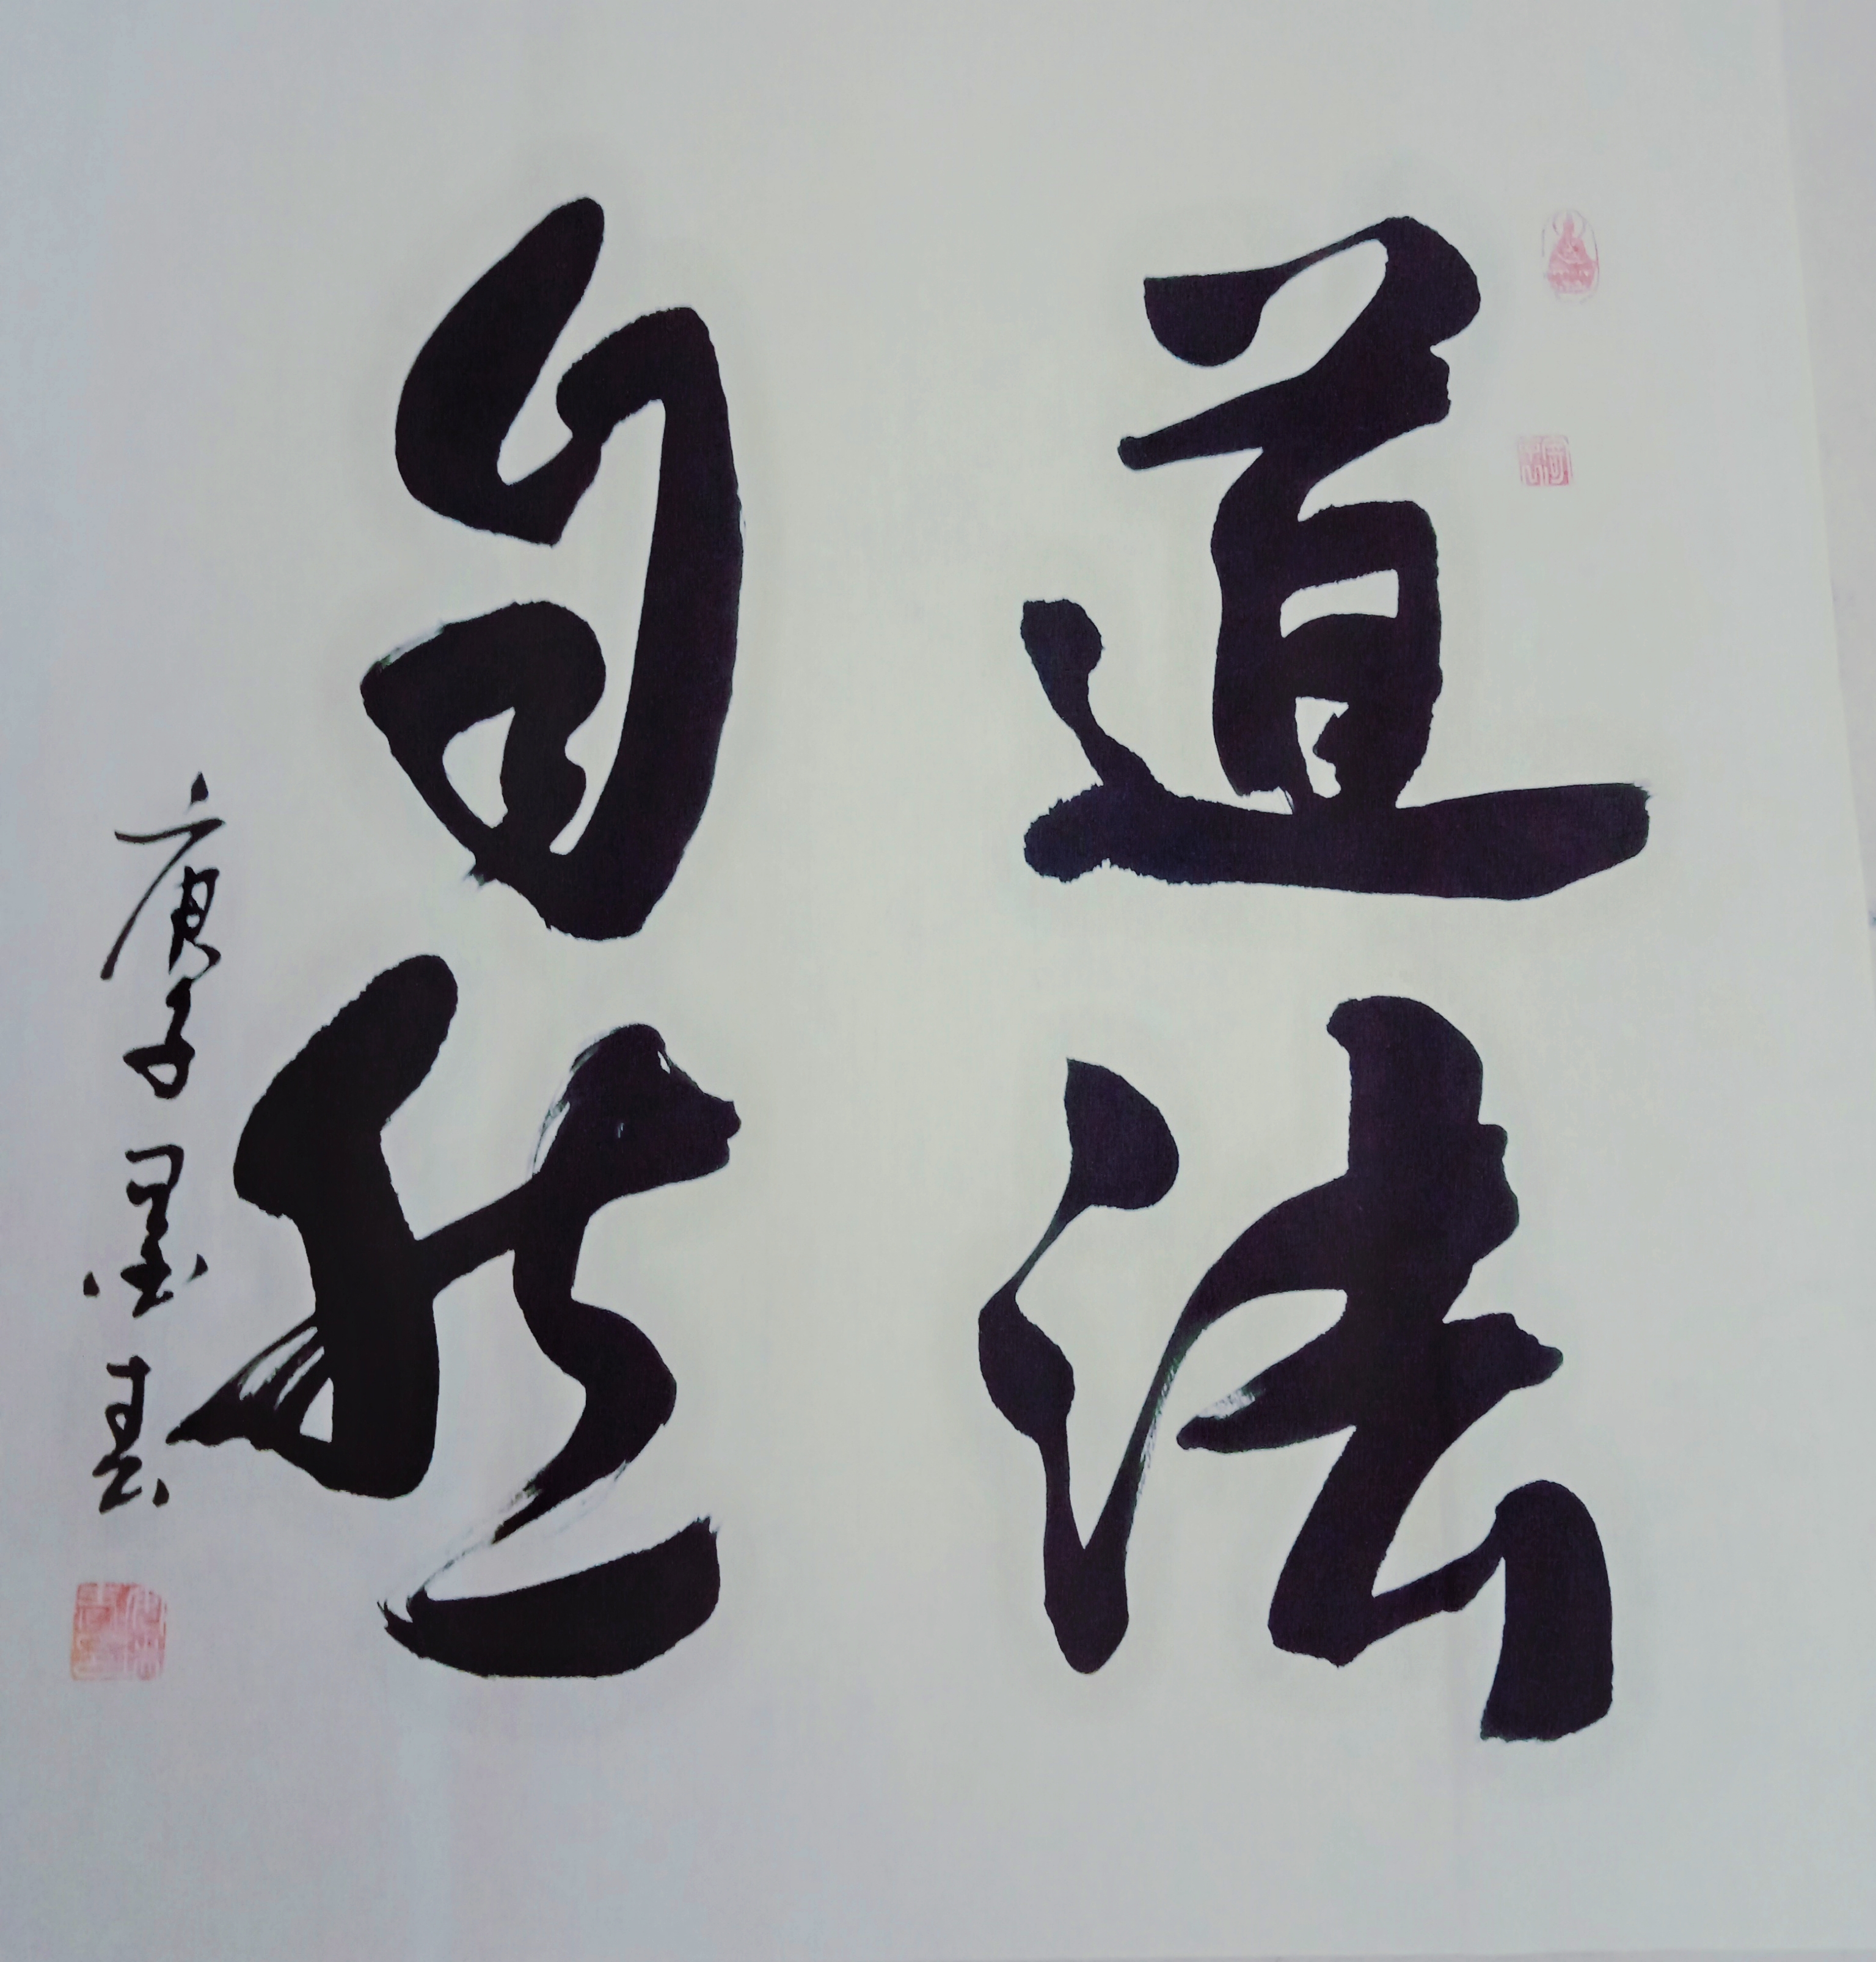 道法
自然
庚子墨真